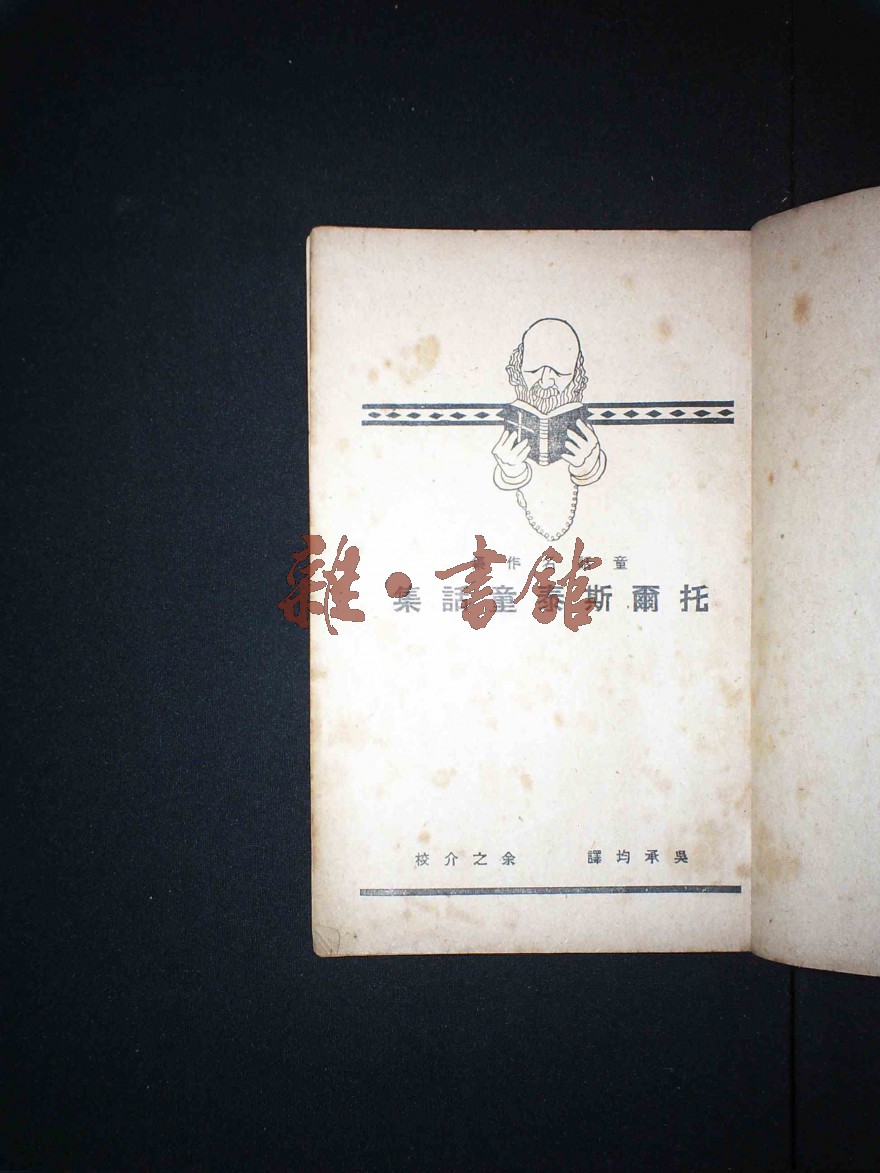 童話名作
托爾斯泰童話集
雜·書館
吳承均譯 余之介校